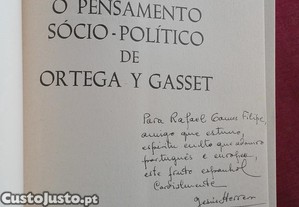 O PENSAMENTO
SÓCIO-POLÍTICO
DE
ORTEGA Y GASSET
Para Rafael Gomes Filipe,
amigo que estimo,
espírito culto que admiro
português e europeu,
este fruto espanhol
Cordialmente
Custojusto.pt